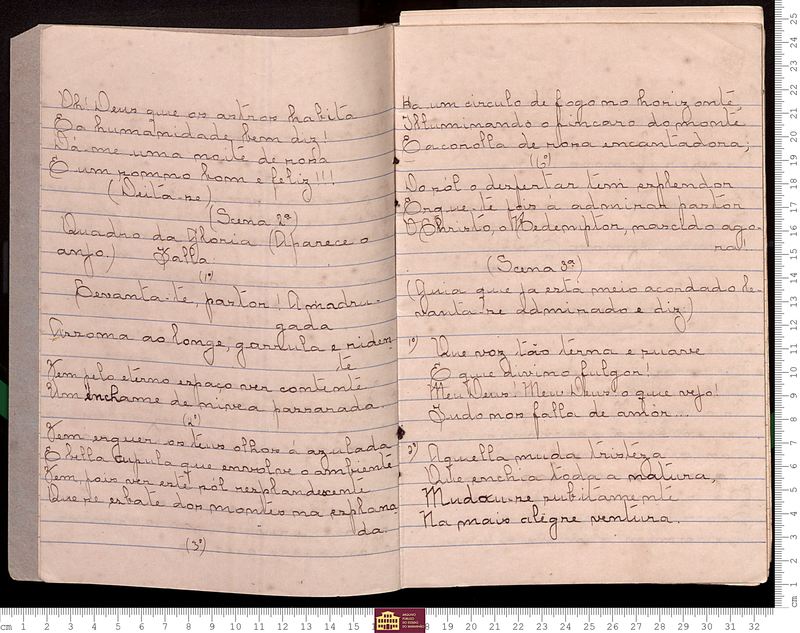 Oh! Deus que os astros habita
E a humanidade bem diz!
Da-me uma noite de rosa
E um somno bom e feliz!!!
(Deita-se)
(Scena 2ª)
Quadro da Gloria (Apparece o
anjo.) Falla.
(1º)
Levanta-te, pastor! A madru-
gada
Assoma ao longe, garrula e riden
te
Vem pelo eterno espaço ver contente
Um enchame de nivea passarada.
(2º)
Vem erguer os teus olhos á azulada
E bella cupula que envolve o ambiente
Vem, pois ver este sól resplandescente
Que se esbate dos montes na esplana
da.
(3º)
Ha um circulo de fogo no horizonte
Illuminando o pincaro do monte
E a corolla de rosa encantadora;
(5º)
Do sól o despertar tem esplendor
Ergue-te pois á admirar pastor
O Christo, o Redemptor, nascido ago-
ra!
(Scena 3ª)
(Guia que ja está meio acordado le-
vanta-se admirado e diz:)
1º) Que voz tão terna e suave
E que divino fulgor!
Meu Deus! Meu Deus o que vejo!
Tudo nos falla de amor...
2º) Aquella muda tristeza
Que enchia toda a natura,
Mudou-se subitamente
Na mais alegre ventura.
cm 1 2 3 4 5 6 7 8 9 10 11 12 13 14 15
ARQUIVO
PÚBLICO
DO ESTADO
DO MARANHÃO
18 19 20 21 22 23 24 25 26 27 28 29 30 31 32
cm 1 2 3 4 5 6 7 8 9 10 11 12 13 14 15 16 17 18 19 20 21 22 23 24 25